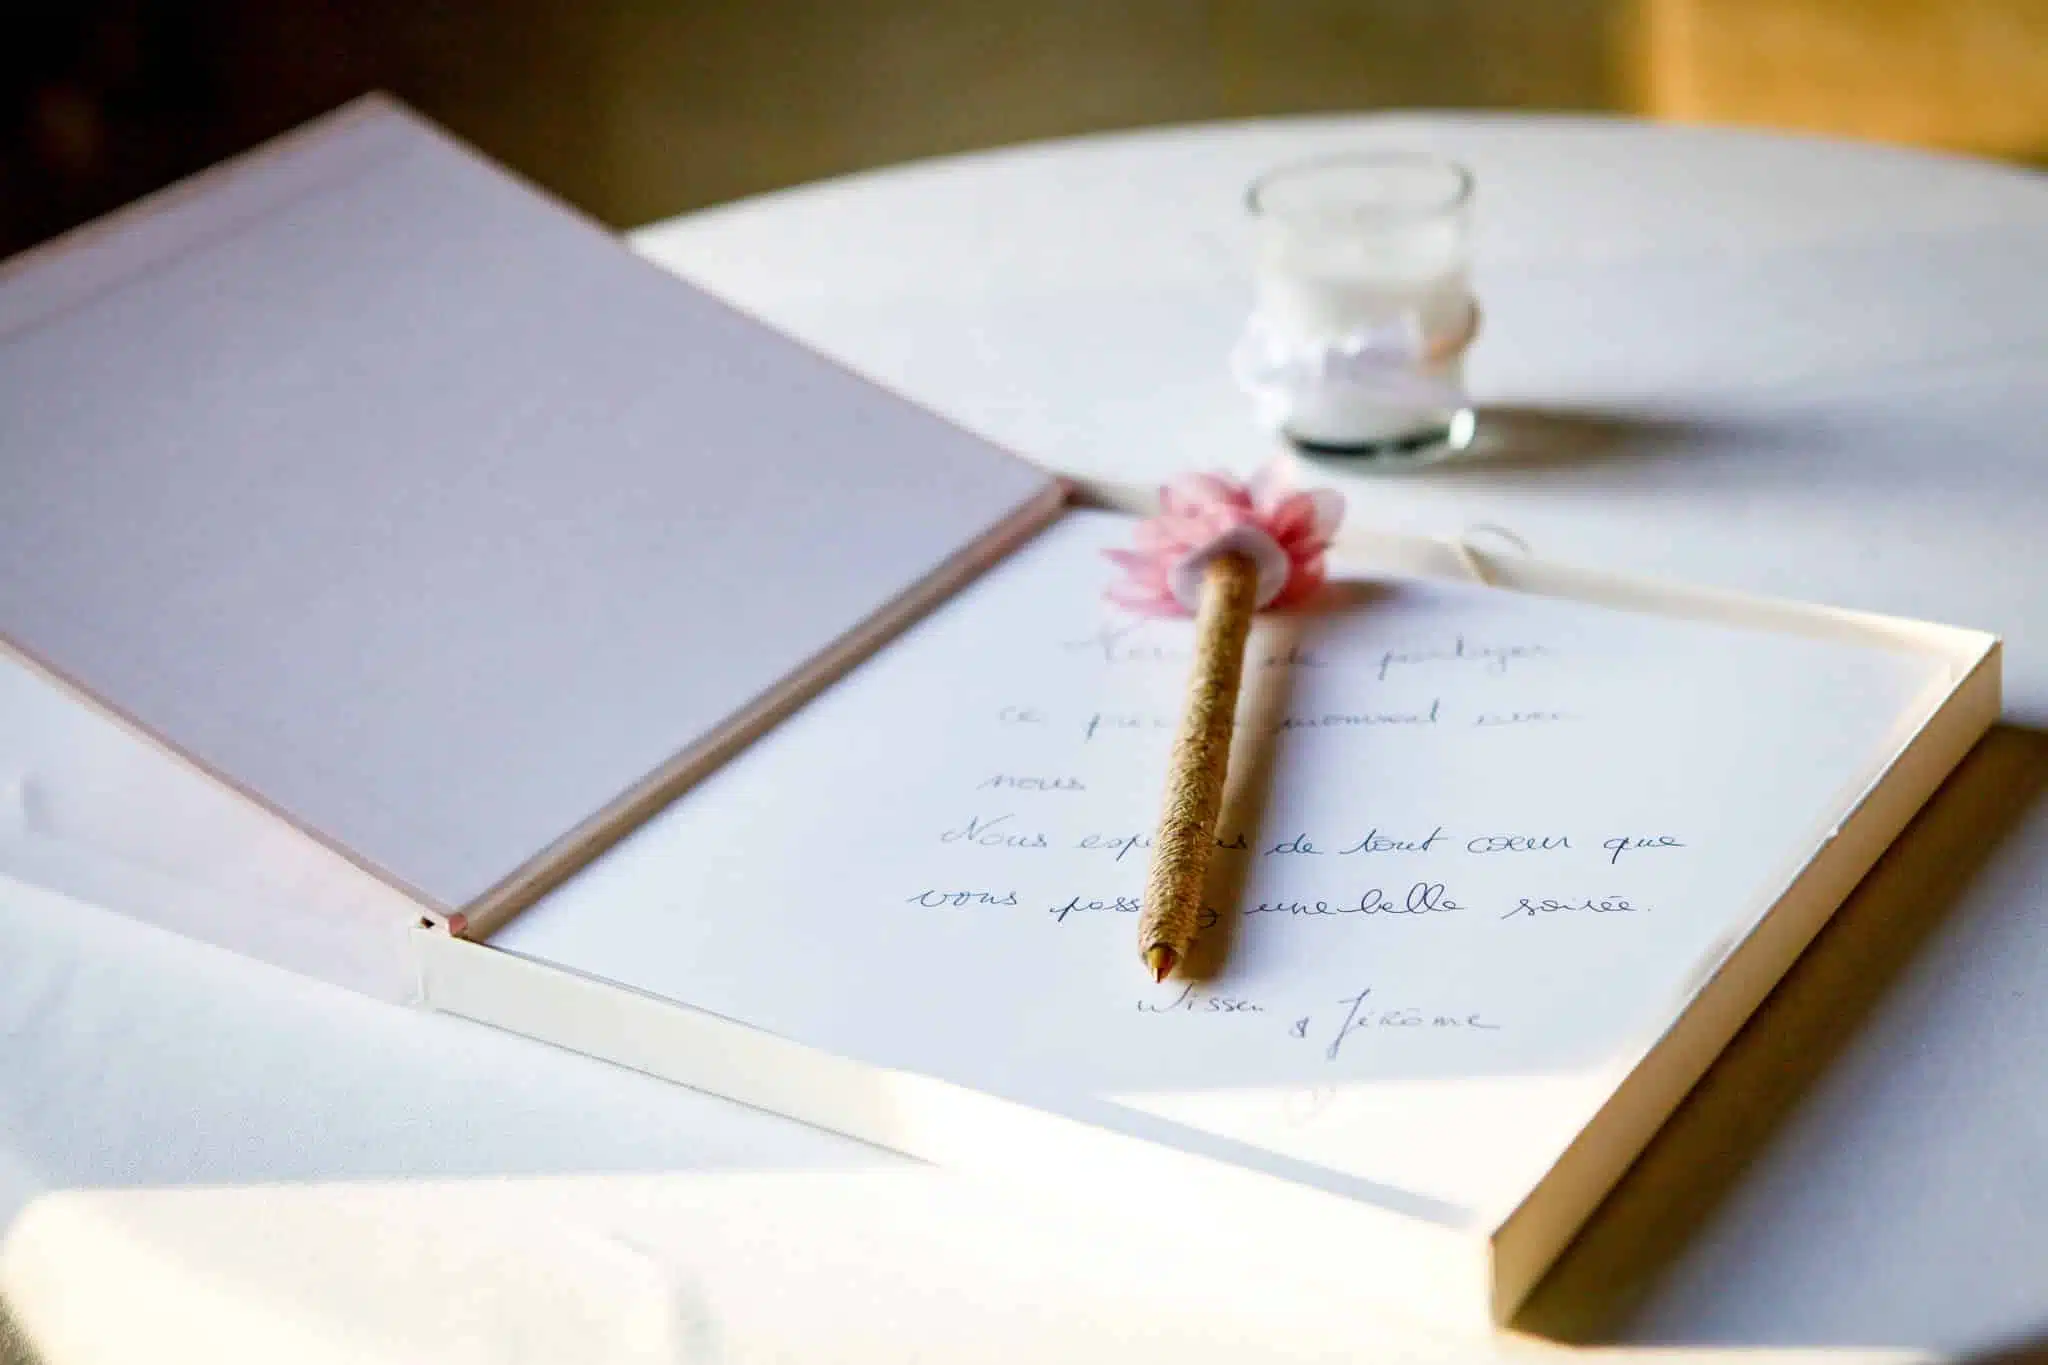 de partager
ce moment avec
nous
Nous de tout coeur que
vous une belle soirée.
Wissem & Jérôme